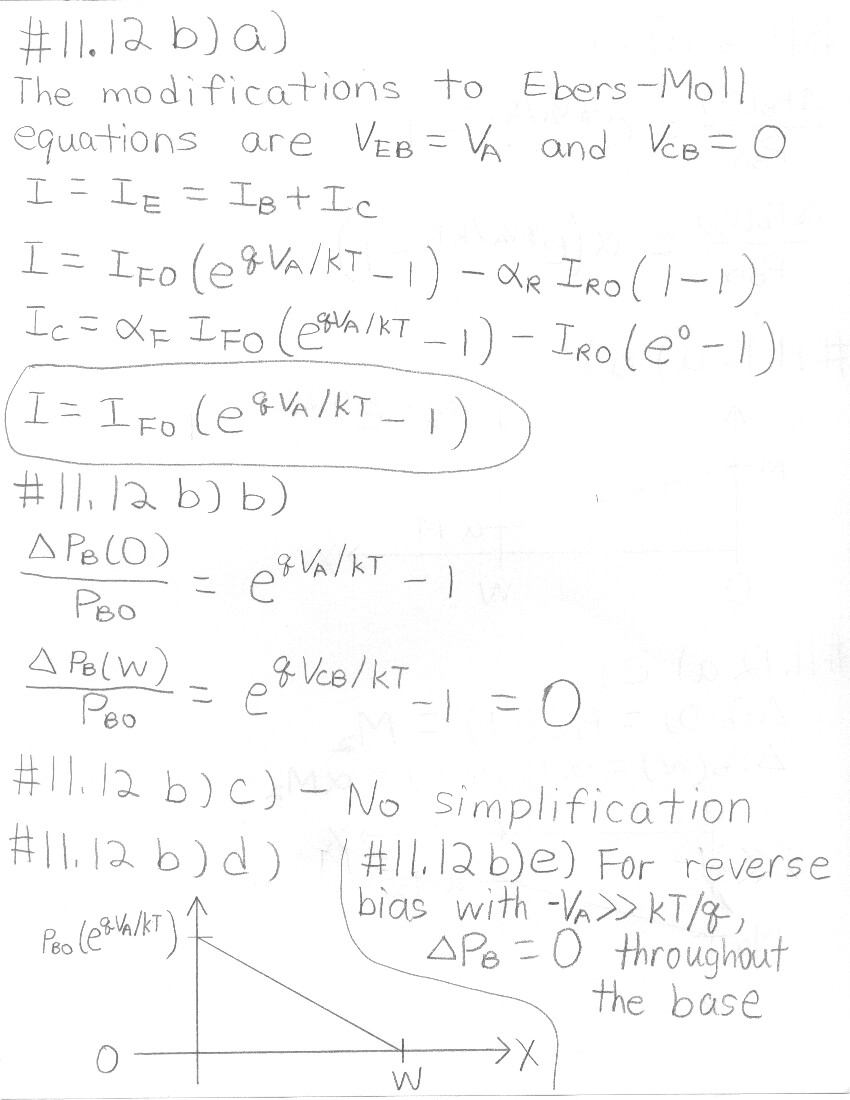 #11.12 b) a)
The modifications to Ebers-Moll
equations are V_EB = V_A and V_CB = 0
I = I_E = I_B + I_C
I = I_FO (e^{qV_A/kT} - 1) - α_R I_RO (1-1)
I_C = α_F I_FO (e^{qV_A/kT} - 1) - I_RO (e^0 - 1)
I = I_FO (e^{qV_A/kT} - 1)
#11.12 b) b)
ΔP_B(0)/P_BO = e^{qV_A/kT} - 1
ΔP_B(W)/P_BO = e^{qV_CB/kT} - 1 = 0
#11.12 b) c) - No simplification
#11.12 b) d)
P_BO (e^{qV_A/kT})
0
W
X
#11.12 b) e) For reverse
bias with -V_A >> kT/q,
ΔP_B = 0 throughout
the base